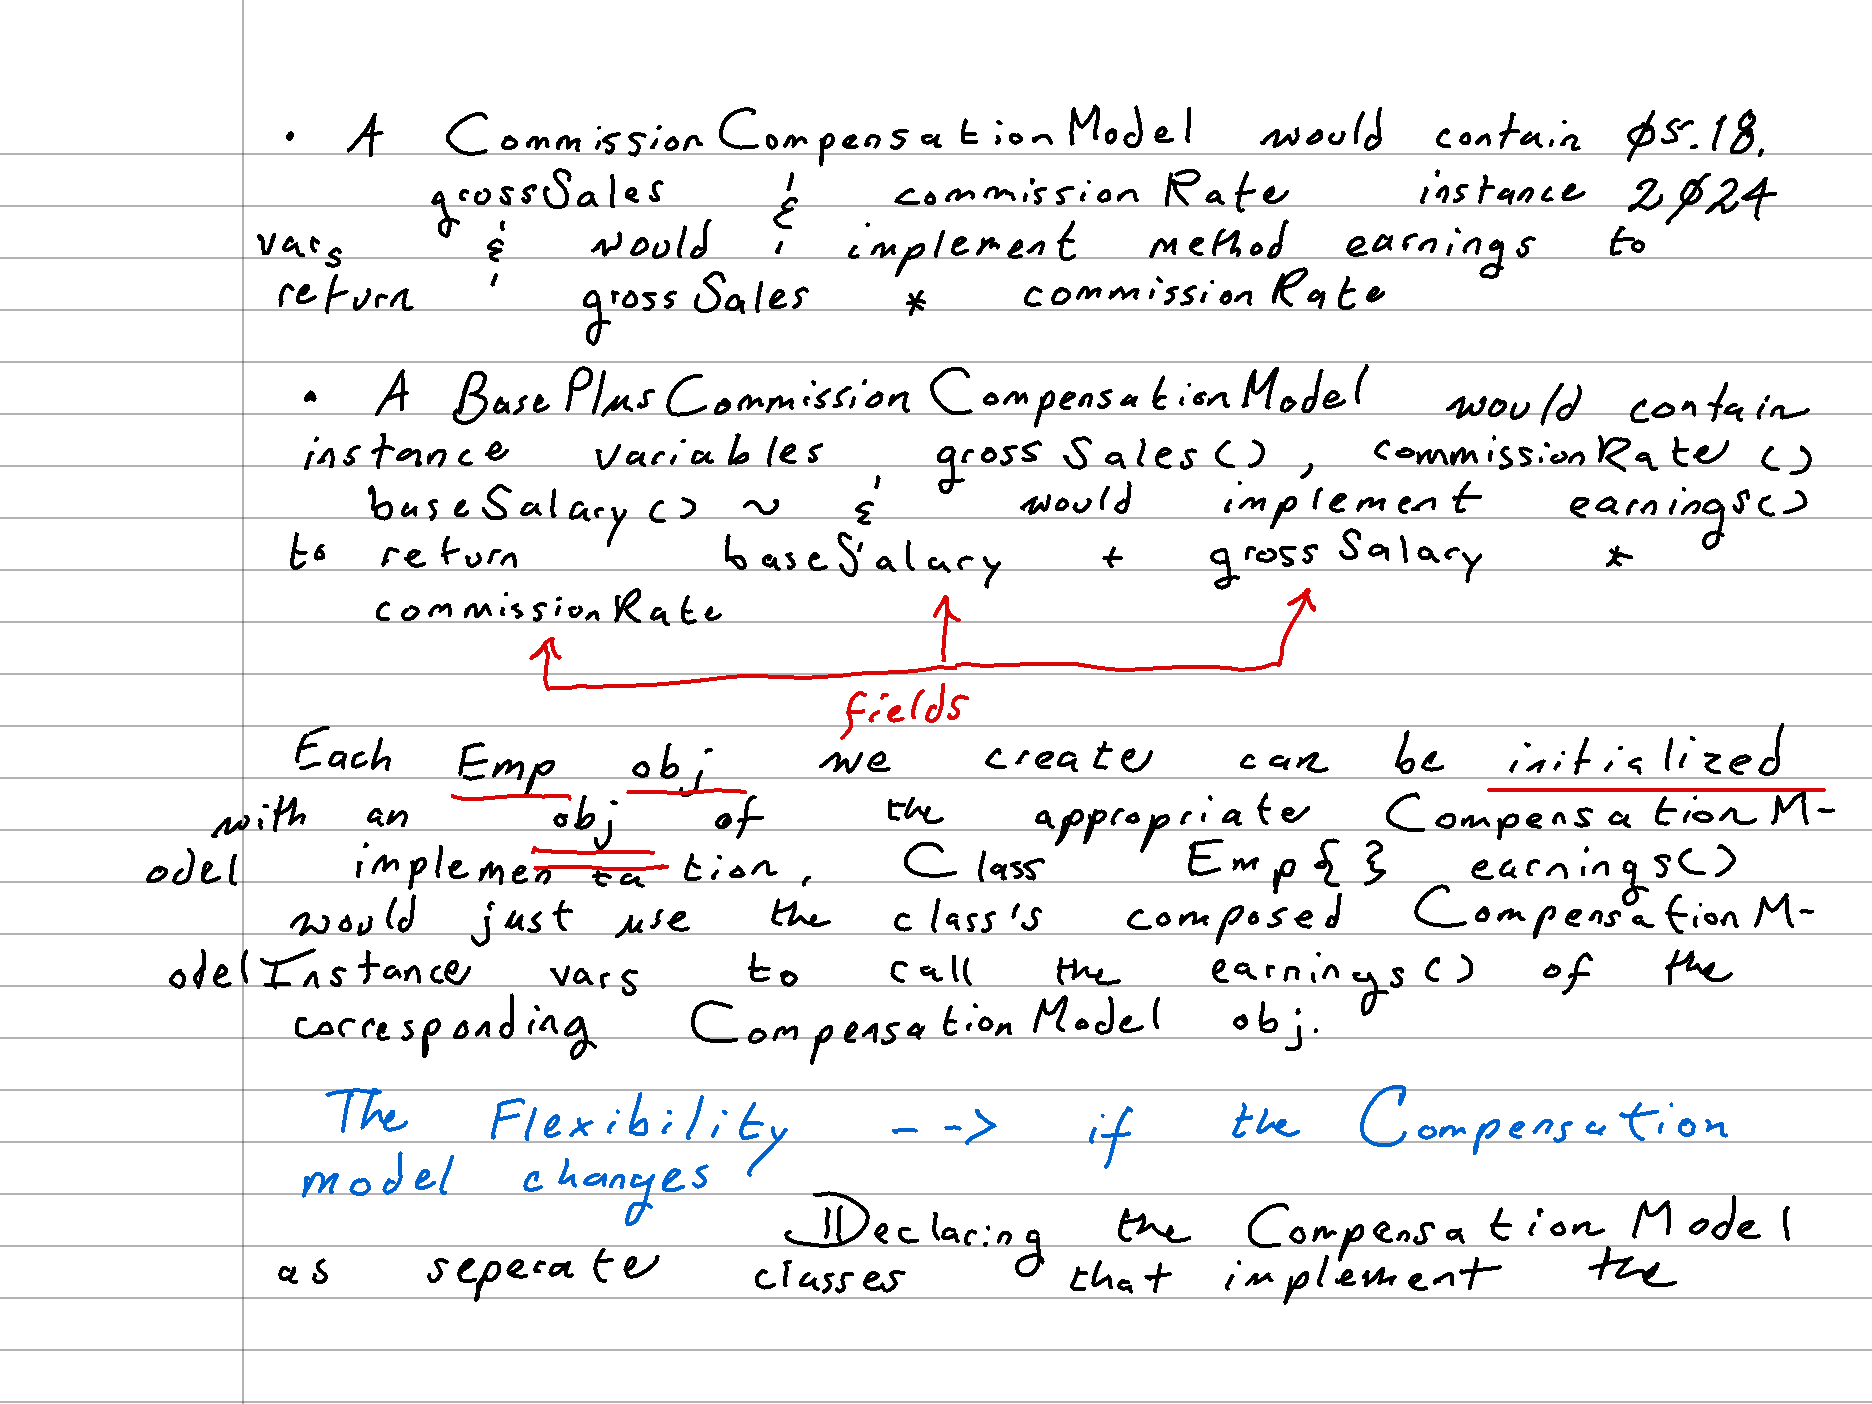 • A CommissionCompensationModel would contain Ø5.18.
grossSales & commissionRate instance 2Ø24
vars & would implement method earnings to
return grossSales * commissionRate
• A BasePlusCommissionCompensationModel would contain
instance variables grossSales(), commissionRate()
baseSalary() ~ & would implement earnings()
to return baseSalary + grossSalary *
commissionRate
fields
Each Emp obj we create can be initialized
with an obj of the appropriate CompensationM-
odel implementation, Class Emp{} earnings()
would just use the class's composed CompensationM-
odelInstance vars to call the earnings() of the
corresponding CompensationModel obj.
The Flexibility --> if the Compensation
model changes
Declaring the CompensationModel
as seperate classes that implement the